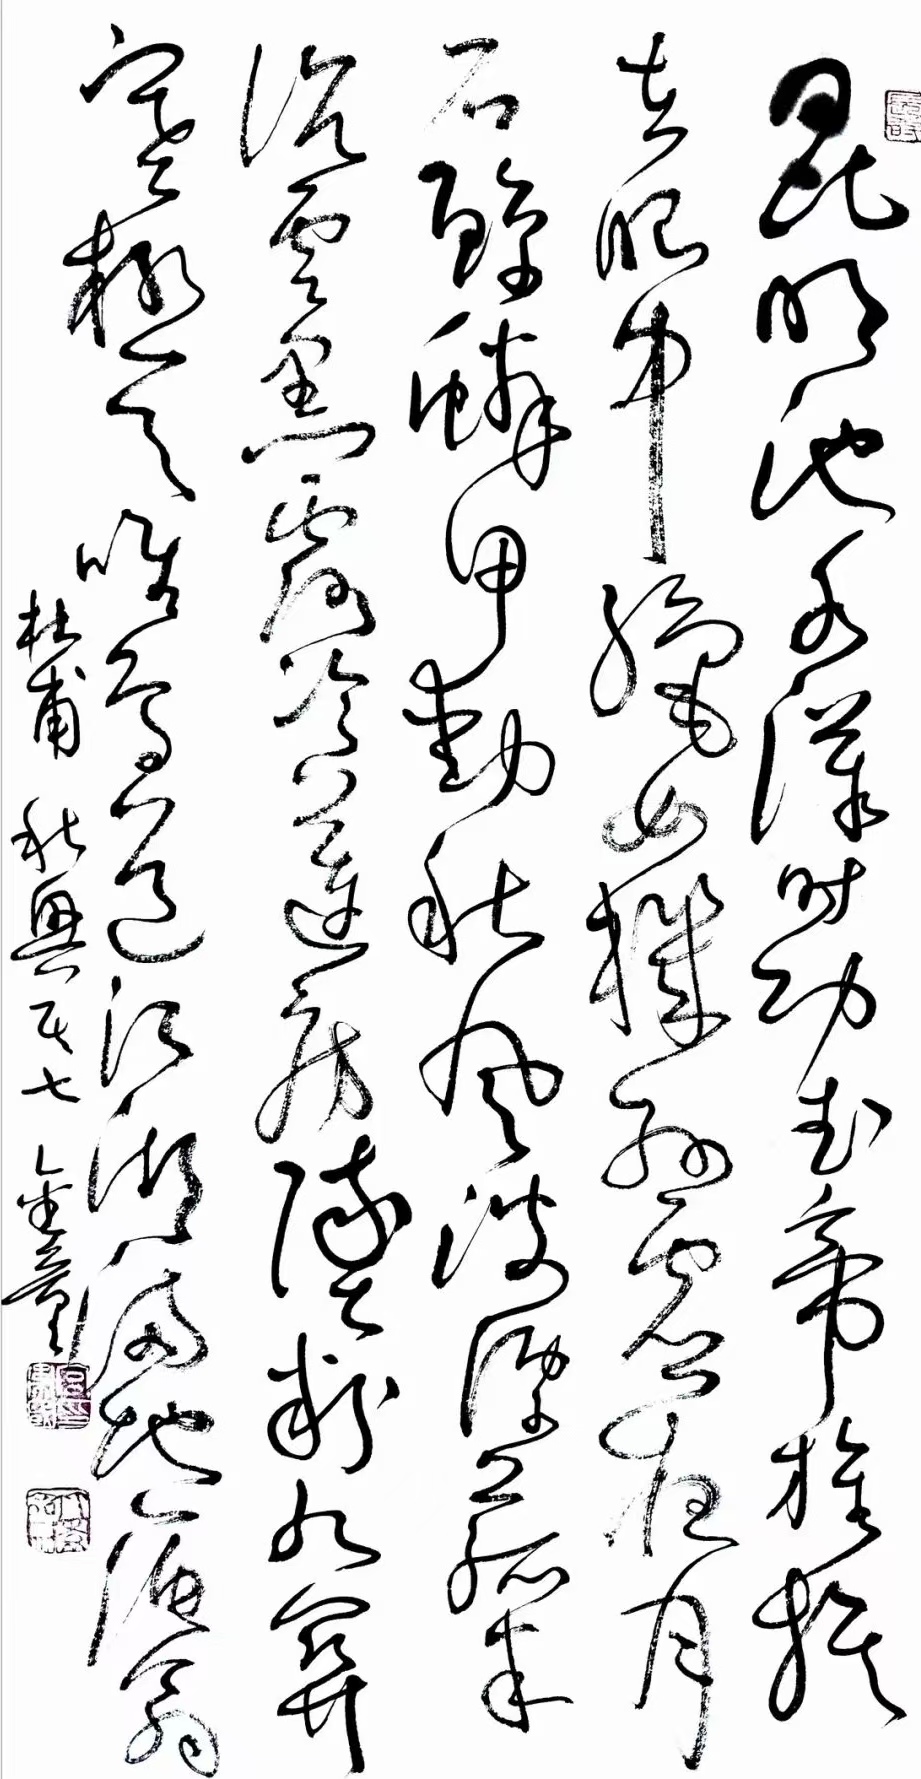 昆明池水漢时功武帝旌旗
在眼中織女機絲虛夜月
石鯨鱗甲動秋風波漂菰米
沉雲黑露冷蓮房墜粉紅關
塞極天唯鳥道江湖滿地一漁翁
杜甫 秋興其七